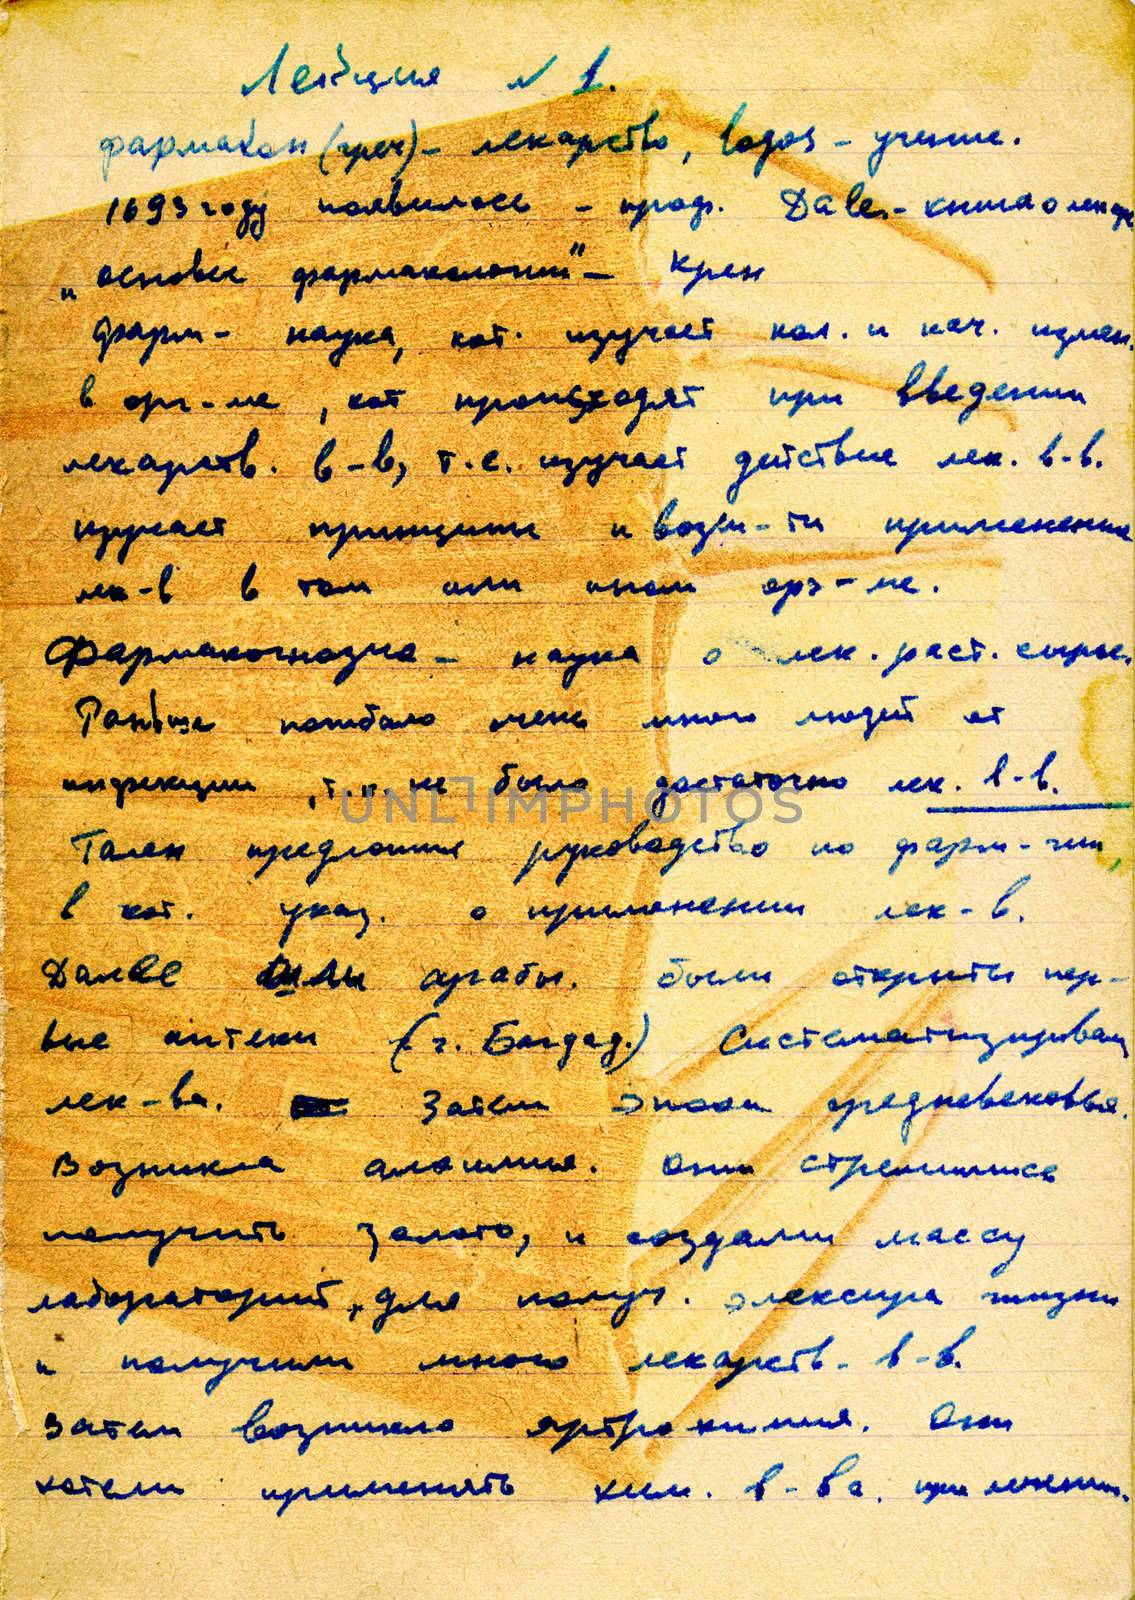 Лекция N 1.
фармакон (греч) - лекарство, logos - учение.
1693 году появилось - проф. Dale - книга о лекар
"основы фармакологии" - Крен
фарм- наука, кот. изучает кол. и кач. измен.
в орг-ме, кот происходят при введении
лекарств. в-в, т.е. изучает действие лек. в-в.
изучает принципы и возм-ти применения
лек-в в том или ином орг-ме.
Фармакогнозия - наука о лек. раст. сырье.
Раньше погибало очень много людей от
инфекции, т.к. не было достаточно лек. в-в.
UNLIMPHOTOS
Гален предложил руководство по фарм-гии,
в кот. указ. о применении лек-в.
Далее шли арабы. были открыты пер-
вые аптеки (г. Багдад.) Систематизировали
лек-ва. Затем эпоха средневековья.
Возникла алхимия. они стремились
получить золото, и создали массу
лабораторий, для получ. элексира жизни
и получили много лекарств. в-в.
Затем возникло ятрохимия. Они
хотели применять хим. в-ва. при лечении.